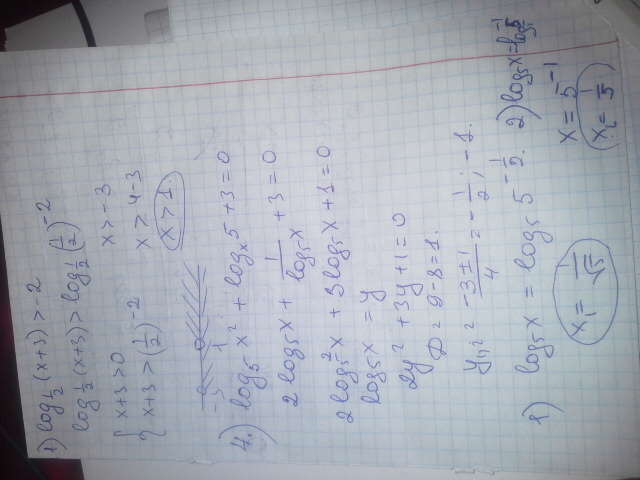 1) log_{1/2} (x+3) > -2
log_{1/2} (x+3) > log_{1/2} (1/2)^{-2}
{ x+3 > 0 x > -3
x+3 > (1/2)^{-2} x > 4-3
x > 1.
-3 1
4.) log_5 x^2 + log_x 5 + 3 = 0
2 log_5 x + 1/(log_5 x) + 3 = 0
2 log_5^2 x + 3 log_5 x + 1 = 0
log_5 x = y
2y^2 + 3y + 1 = 0
D = 9 - 8 = 1.
y_{1,2} = (-3 ± 1)/4 = -1/2 ; -1.
1) log_5 x = log_5 5^{-1/2}. 2) log_5 x = log_5 5^{-1}
x_1 = 1/√5 x = 5^{-1}
x_2 = 1/5